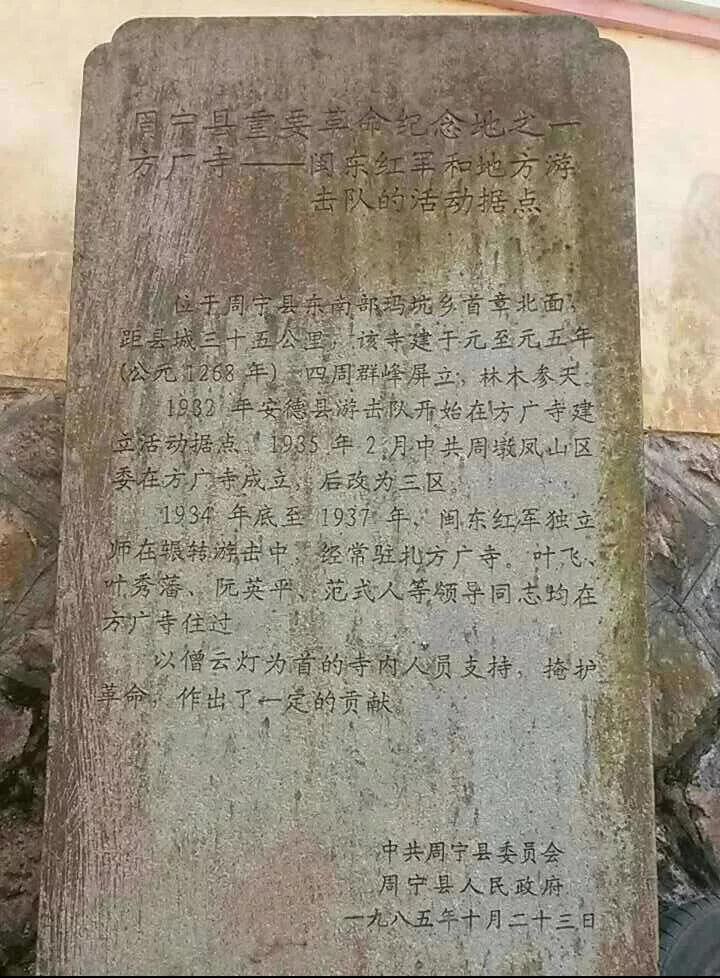 周宁县重要革命纪念地之一
方广寺——闽东红军和地方游
击队的活动据点
位于周宁县东南部玛坑乡首章北面，
距县城三十五公里，该寺建于元至元五年
(公元1268年) 四周群峰屏立，林木参天。
1932 年安德县游击队开始在方广寺建
立活动据点、1935 年 2 月中共周墩凤山区
委在方广寺成立，后改为三区。
1934 年底至 1937 年，闽东红军独立
师在辗转游击中，经常驻扎方广寺。叶飞、
叶秀藩、阮英平、范式人等领导同志均在
方广寺住过
以僧云灯为首的寺内人员支持，掩护
革命，作出了一定的贡献
中共周宁县委员会
周宁县人民政府
一九八五年十月二十三日